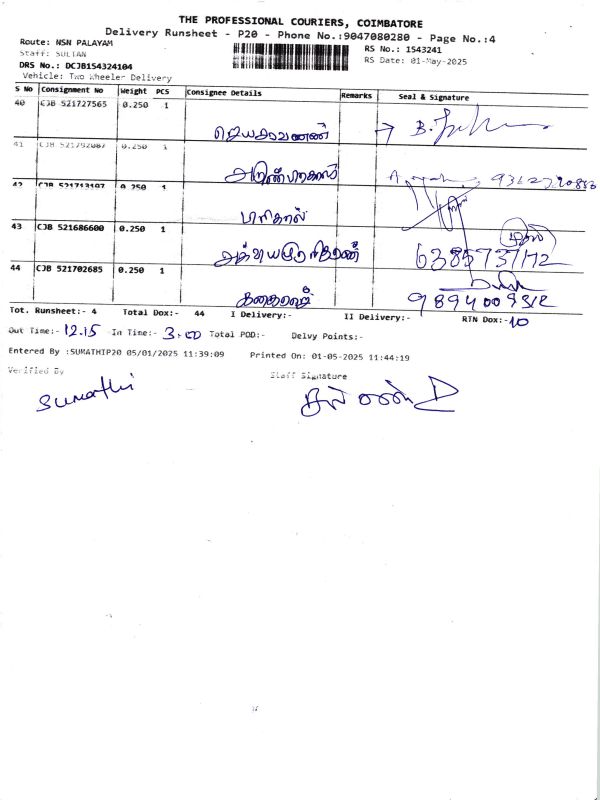 THE PROFESSIONAL COURIERS, COIMBATORE
Delivery Runsheet - P20 - Phone No.:9047080280 - Page No.:4
Route: NSN PALAYAM
RS No.: 1543241
Staff: SULTAN
RS Date: 01-May-2025
DRS No.: DCJB154324104
Vehicle: Two Wheeler Delivery
S No Consignment No Weight PCS Consignee Details Remarks Seal & Signature
40 CJB 521727565 0.250 1
41 CJB 521792087 0.250 1
42 CJB 521713197 0.250 1
43 CJB 521686600 0.250 1 6385737172
44 CJB 521702685 0.250 1 9894009312
Tot. Runsheet:- 4 Total Dox:- 44 I Delivery:- II Delivery:- RTN Dox:- 10
Out Time:- 12.15 In Time:- 3.00 Total POD:- Delvy Points:-
Entered By :SUMATHIP20 05/01/2025 11:39:09 Printed On: 01-05-2025 11:44:19
Verified By Staff Signature
Sumathi